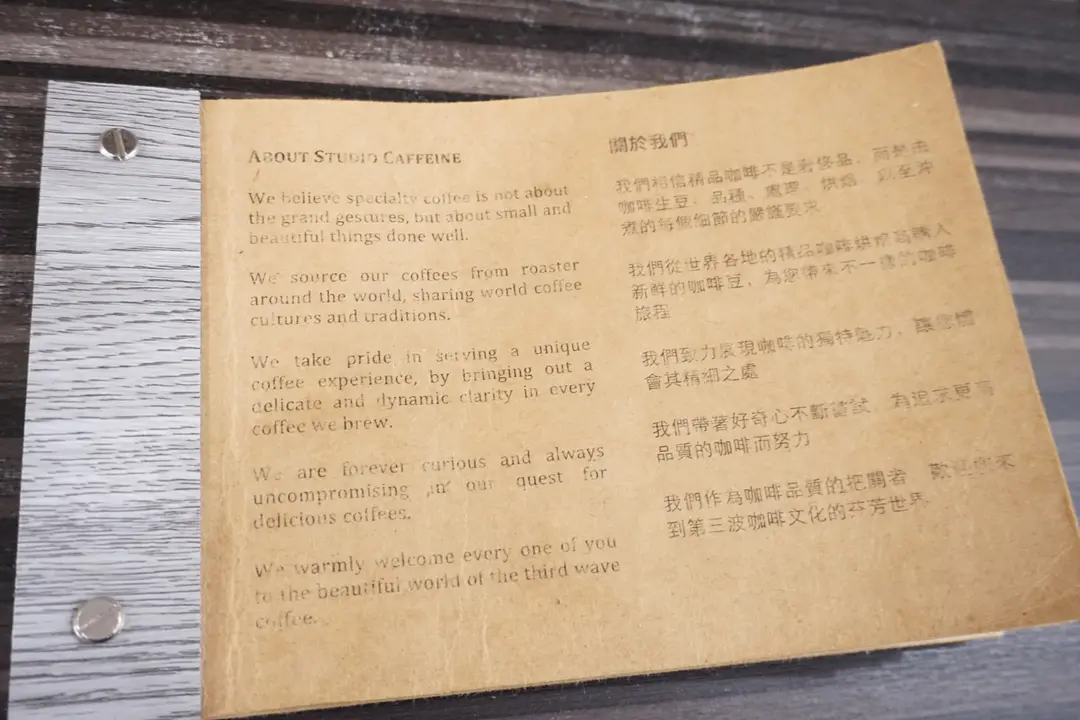 ABOUT STUDIO CAFFEINE
We believe specialty coffee is not about
the grand gestures, but about small and
beautiful things done well.
We source our coffees from roaster
around the world, sharing world coffee
cultures and traditions.
We take pride in serving a unique
coffee experience, by bringing out a
delicate and dynamic clarity in every
coffee we brew.
We are forever curious and always
uncompromising in our quest for
delicious coffees.
We warmly welcome every one of you
to the beautiful world of the third wave
coffee.
關於我們
我們相信精品咖啡不是奢侈品，而是由
咖啡生豆、品種、處理、烘焙、以至沖
煮的每個細節的嚴謹要求
我們從世界各地的精品咖啡烘焙商購入
新鮮的咖啡豆，為您帶來不一樣的咖啡
旅程
我們致力展現咖啡的獨特魅力，讓您體
會其精細之處
我們帶著好奇心不斷嘗試，為追求更高
品質的咖啡而努力
我們作為咖啡品質的把關者，歡迎您來
到第三波咖啡文化的芬芳世界